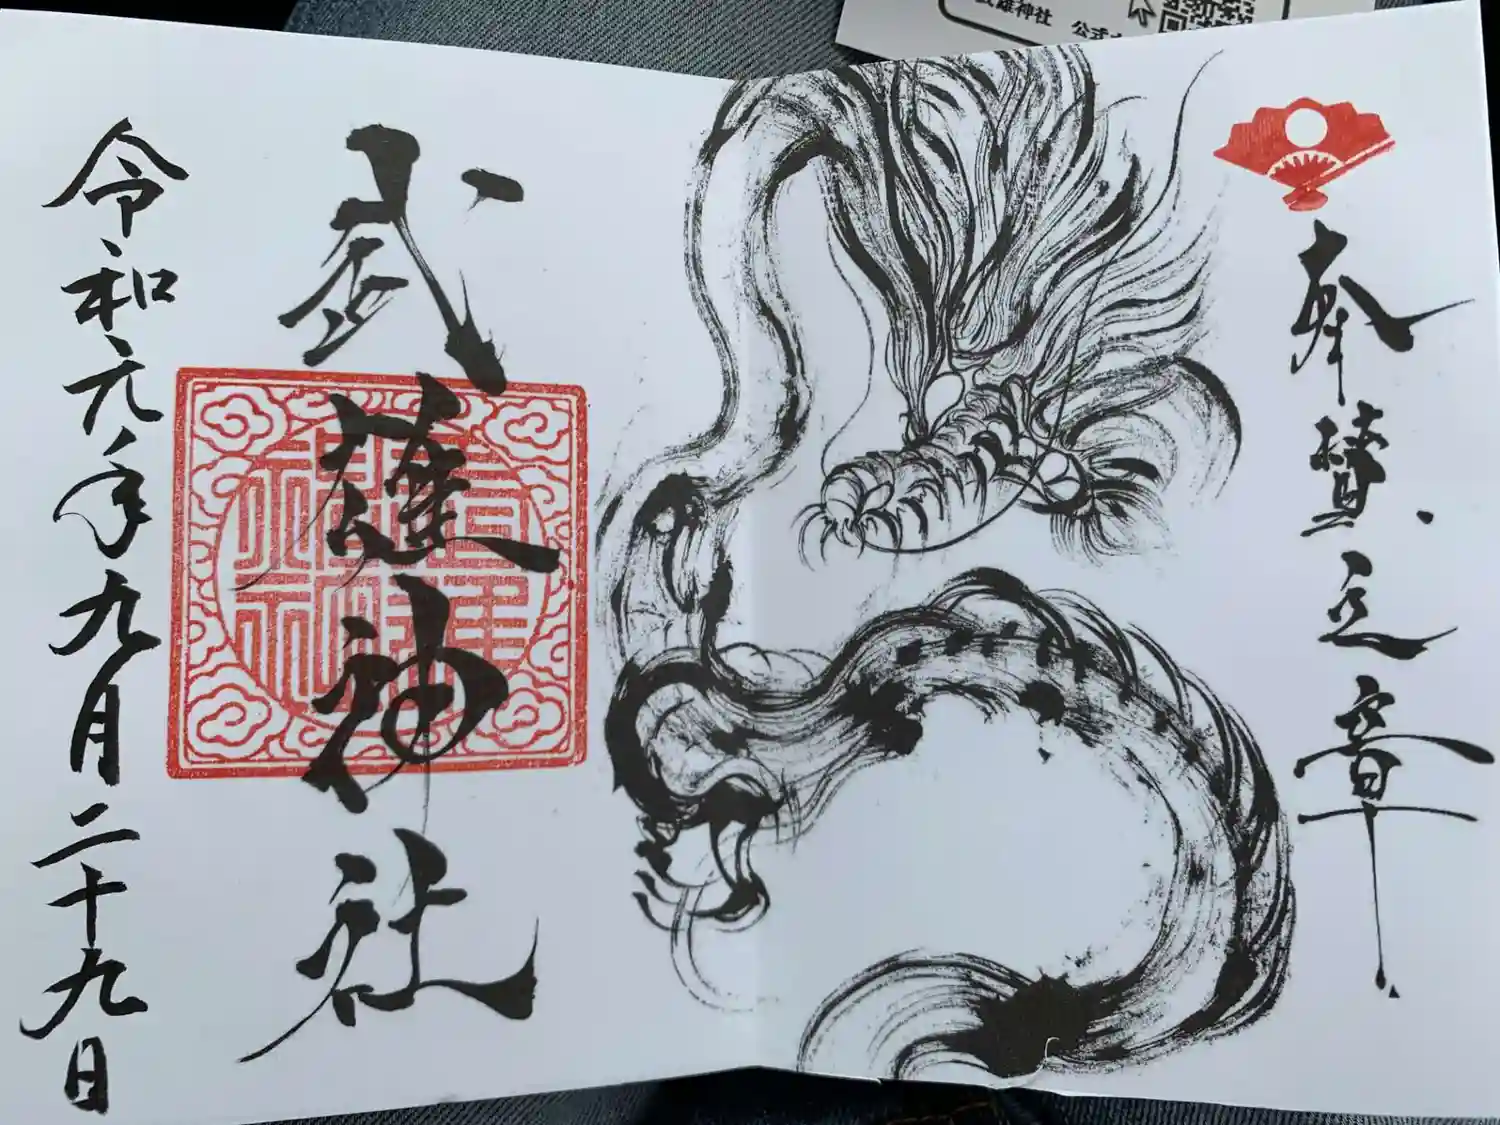 奉賛之章
武雄神社
令和元年九月二十九日
武雄神社 公式